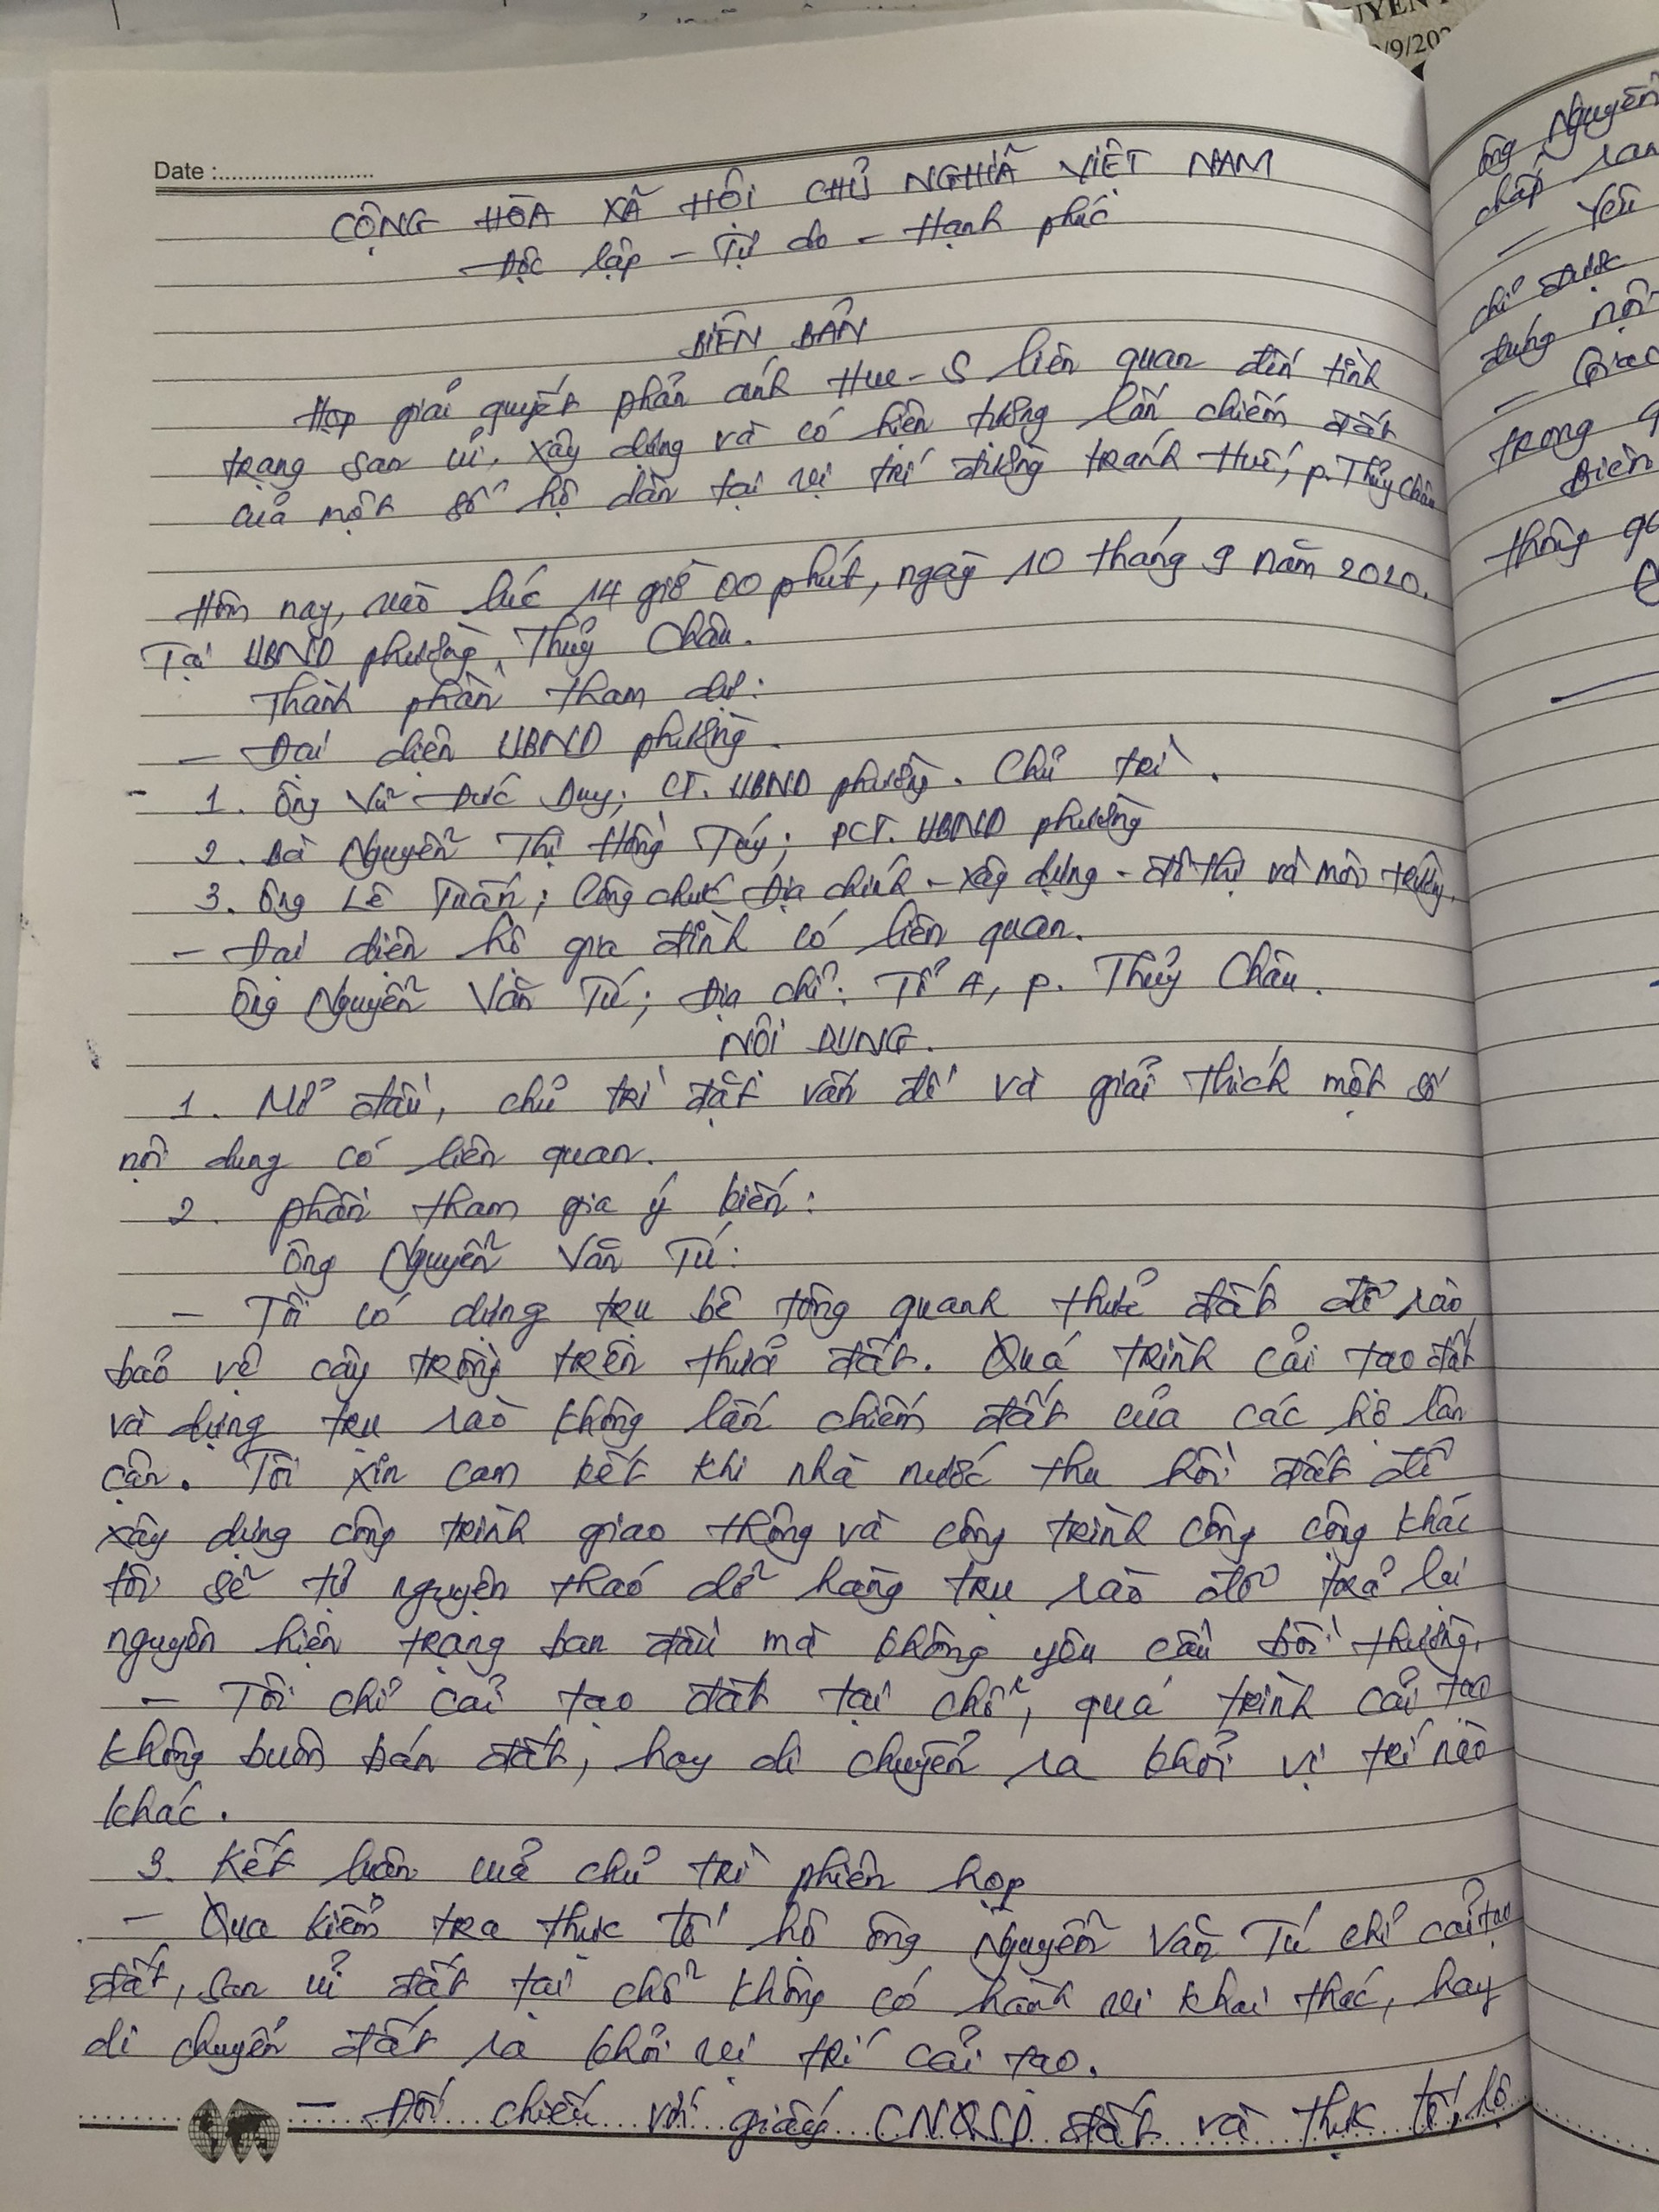 UYEN
/9/202
Date :
CỘNG HÒA XÃ HỘI CHỦ NGHĨA VIỆT NAM
Độc lập - Tự do - Hạnh phúc
BIÊN BẢN
Họp giải quyết phản ánh Hue-S liên quan đến tình
trạng san ủi, xây dựng và có hiện tượng lấn chiếm đất
của một số hộ dân tại vị trí đường tránh Huế, p. Thủy Châu
Hôm nay, vào lúc 14 giờ 00 phút, ngày 10 tháng 9 năm 2020.
Tại UBND phường Thủy Châu.
Thành phần tham dự:
- Đại diện UBND phường.
1. Ông Vũ Đức Duy; CT. UBND phường. Chủ trì.
2. Bà Nguyễn Thị Hồng Túy; PCT. UBND phường
3. Ông Lê Tuấn; Công chức Địa chính - Xây dựng - đô thị và môi trường.
- Đại diện hộ gia đình có liên quan.
Ông Nguyễn Văn Tú; Địa chỉ: Tổ 4, p. Thủy Châu.
NỘI DUNG.
1. Mở đầu, chủ trì đặt vấn đề và giải thích một số
nội dung có liên quan.
2. Phần tham gia ý kiến:
Ông Nguyễn Văn Tú:
- Tôi có dựng trụ bê tông quanh thửa đất để rào
bảo vệ cây trồng trên thửa đất. Quá trình cải tạo đất
và dựng trụ rào không lấn chiếm đất của các hộ lân
cận. Tôi xin cam kết khi nhà nước thu hồi đất để
xây dựng công trình giao thông và công trình công cộng khác
tôi sẽ tự nguyện tháo dỡ hàng trụ rào để trả lại
nguyên hiện trạng ban đầu mà không yêu cầu bồi thường.
- Tôi chỉ cải tạo đất tại chỗ, quá trình cải tạo
không buôn bán đất, hay di chuyển ra khỏi vị trí nào
khác.
3. Kết luận của chủ trì phiên họp
- Qua kiểm tra thực tế hộ ông Nguyễn Văn Tú chỉ cải tạo
đất, san ủi đất tại chỗ không có hành vi khai thác, hay
di chuyển đất ra khỏi vị trí cải tạo.
- Đối chiếu với giấy CNQSD đất và thực tế, hộ
ông Nguyễn
chấp ran
- Yêu
chỉ được
đúng nội
- Giao
trong q
Biên
thông qu